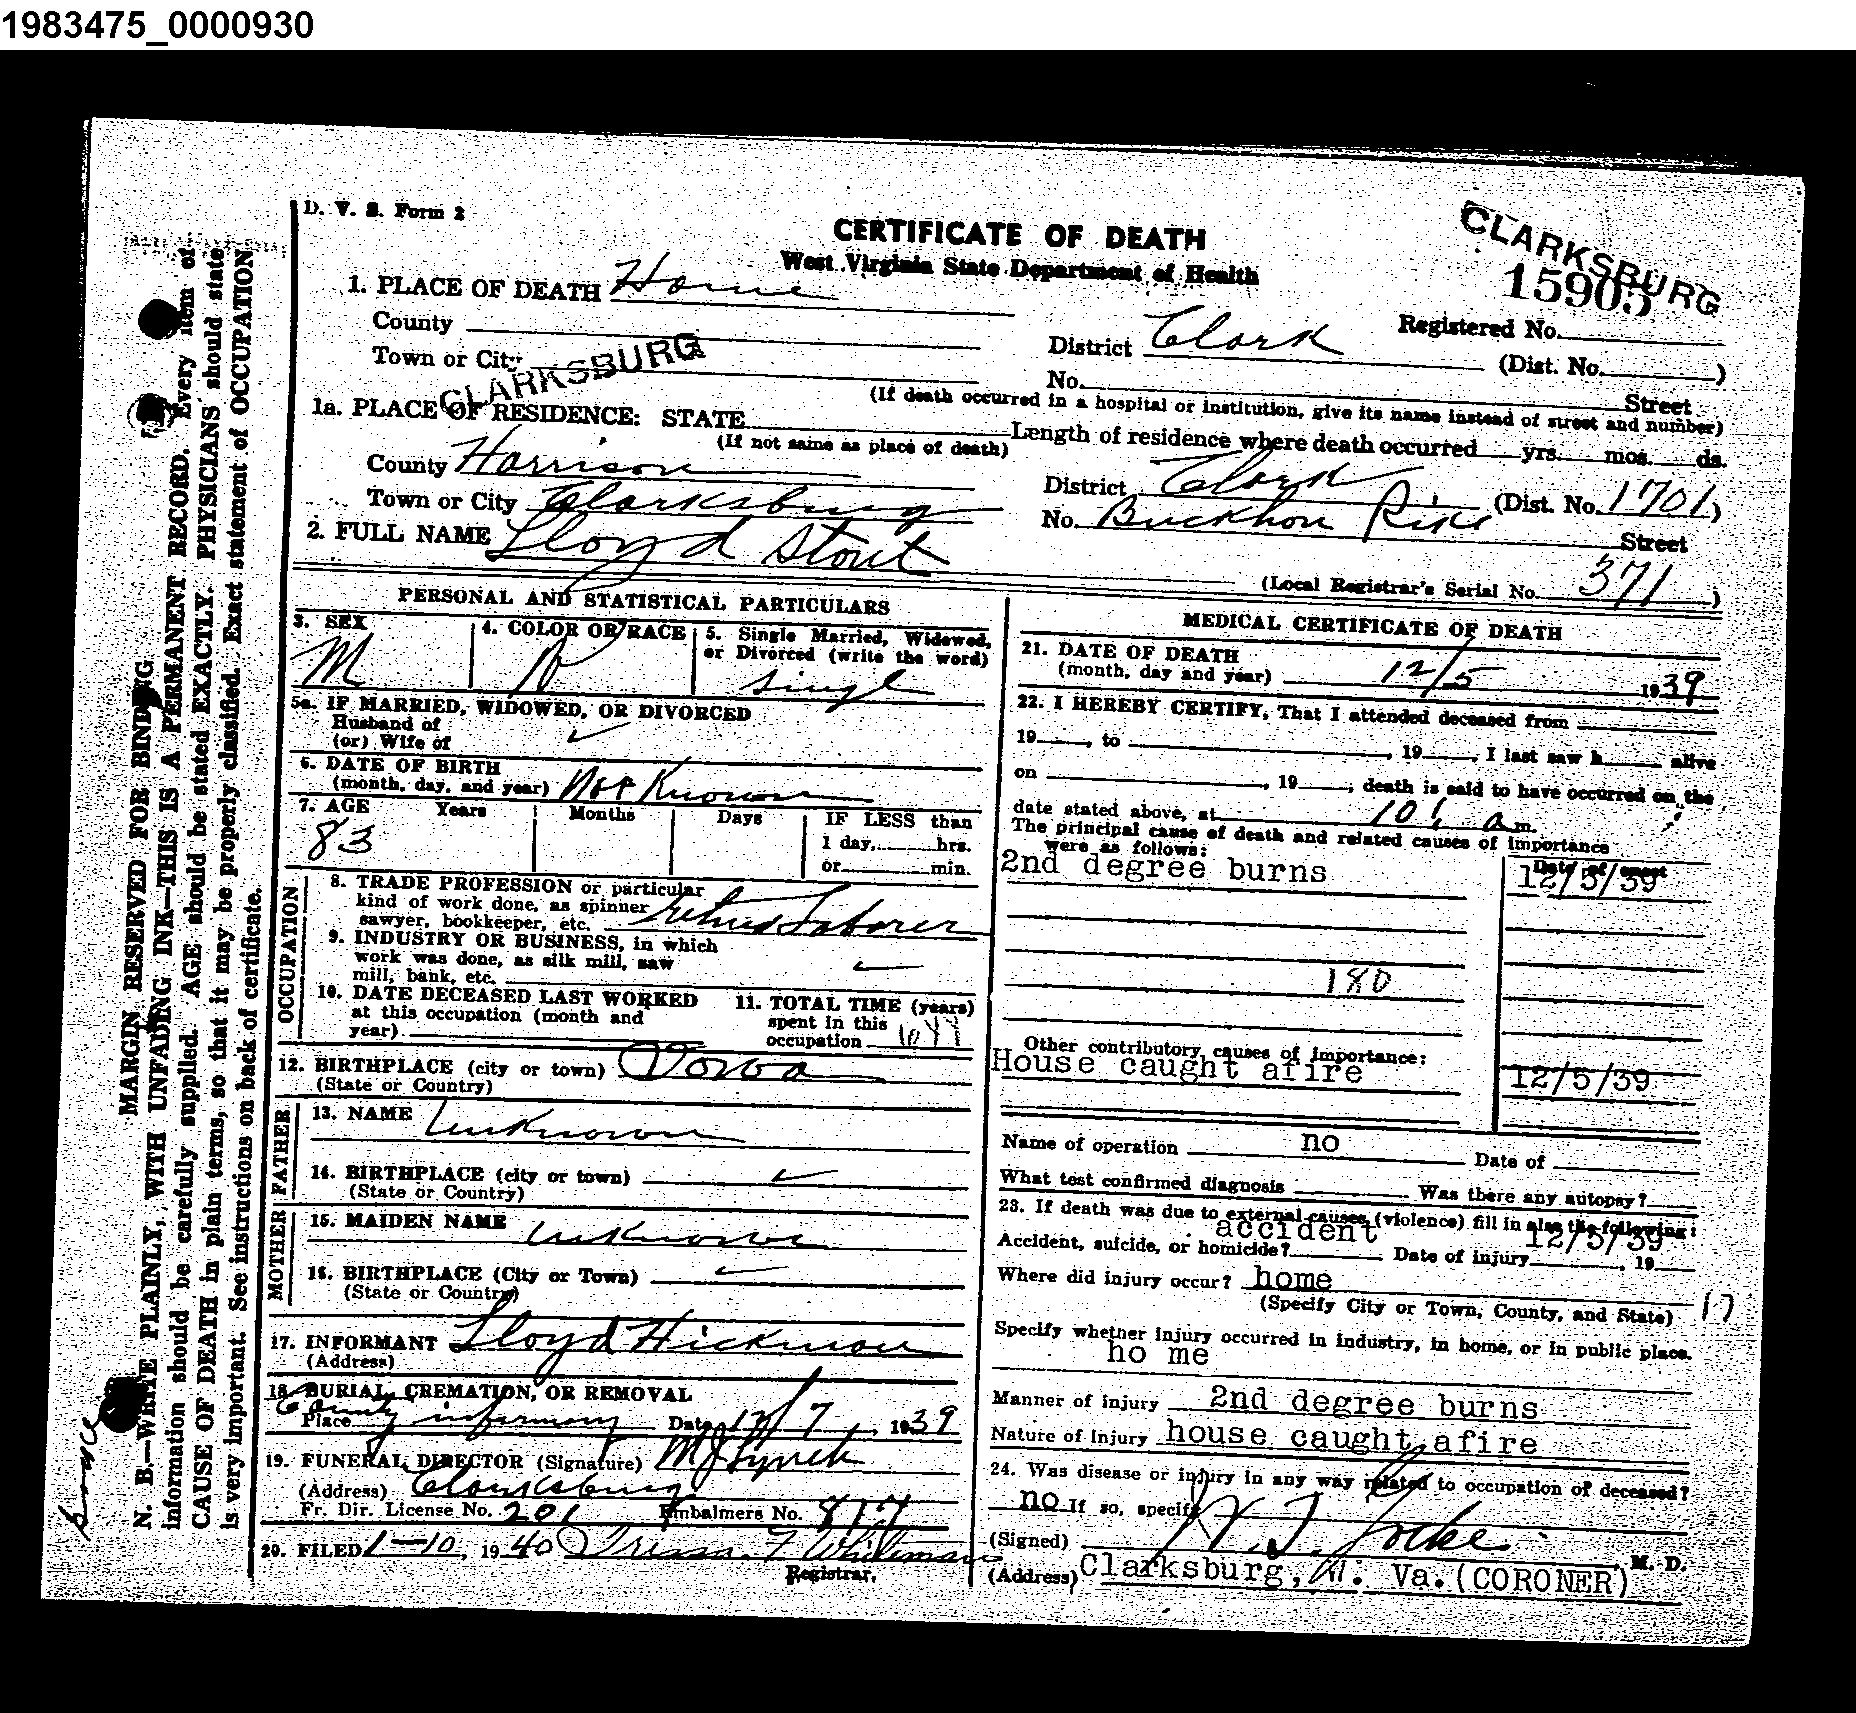 1983475_0000930
D. V. S. Form 2
CERTIFICATE OF DEATH
West Virginia State Department of Health
CLARKSBURG
15905
1. PLACE OF DEATH Home
County
Registered No.
Town or City CLARKSBURG
District Clark (Dist. No. )
No. Street
(If death occurred in a hospital or institution, give its name instead of street and number)
1a. PLACE OF RESIDENCE: STATE
(If not same as place of death)
Length of residence where death occurred yrs. mos. ds.
County Harrison
District Clark (Dist. No. 1701)
Town or City Clarksburg
No. Buckhon Pike Street
2. FULL NAME Lloyd Stout
(Local Registrar's Serial No. 371 )
PERSONAL AND STATISTICAL PARTICULARS
3. SEX
M
4. COLOR OR RACE
5. Single Married, Widowed, or Divorced (write the word)
Singl
5a. IF MARRIED, WIDOWED, OR DIVORCED
Husband of
(or) Wife of
6. DATE OF BIRTH
(month, day, and year) Not Known
7. AGE Years Months Days IF LESS than
83
1 day, hrs.
or min.
OCCUPATION
8. TRADE PROFESSION or particular
kind of work done, as spinner
sawyer, bookkeeper, etc. retired Laborer
9. INDUSTRY OR BUSINESS, in which
work was done, as silk mill, saw
mill, bank, etc.
10. DATE DECEASED LAST WORKED
at this occupation (month and
year)
11. TOTAL TIME (years)
spent in this
occupation
12. BIRTHPLACE (city or town)
(State or Country)
FATHER
13. NAME Unknown
14. BIRTHPLACE (city or town)
(State or Country)
MOTHER
15. MAIDEN NAME Unknown
16. BIRTHPLACE (City or Town)
(State or Country)
17. INFORMANT Lloyd Hickman
(Address)
18. BURIAL, CREMATION, OR REMOVAL
Place County infirmary Date 12/7, 1939
19. FUNERAL DIRECTOR (Signature) M J Lynch
(Address) Clarksburg
Fr. Dir. License No. 201 Embalmers No. 817
20. FILED 1-10, 1940
Registrar.
MEDICAL CERTIFICATE OF DEATH
21. DATE OF DEATH
(month, day and year) 12/5 1939
22. I HEREBY CERTIFY, That I attended deceased from
19 , to , 19 , I last saw h alive
on , 19 , death is said to have occurred on the
date stated above, at 10 a m.
The principal cause of death and related causes of importance
were as follows:
Date of onset
2nd degree burns 12/5/39
180
Other contributory causes of importance:
House caught afire 12/5/39
Name of operation no Date of
What test confirmed diagnosis Was there any autopsy?
23. If death was due to external causes (violence) fill in also the following:
Accident, suicide, or homicide? accident Date of injury 12/5/39, 19
Where did injury occur? home
(Specify City or Town, County, and State)
17
Specify whether injury occurred in industry, in home, or in public place.
ho me
Manner of injury 2nd degree burns
Nature of injury house caught afire
24. Was disease or injury in any way related to occupation of deceased?
no If so, specify
(Signed) Locke M. D.
(Address) Clarksburg, W. Va. (CORONER)
MARGIN RESERVED FOR BINDING
N. B.—WRITE PLAINLY, WITH UNFADING INK—THIS IS A PERMANENT RECORD. Every item of
information should be carefully supplied. AGE should be stated EXACTLY. PHYSICIANS should state
CAUSE OF DEATH in plain terms, so that it may be properly classified. Exact statement of OCCUPATION
is very important. See instructions on back of certificate.